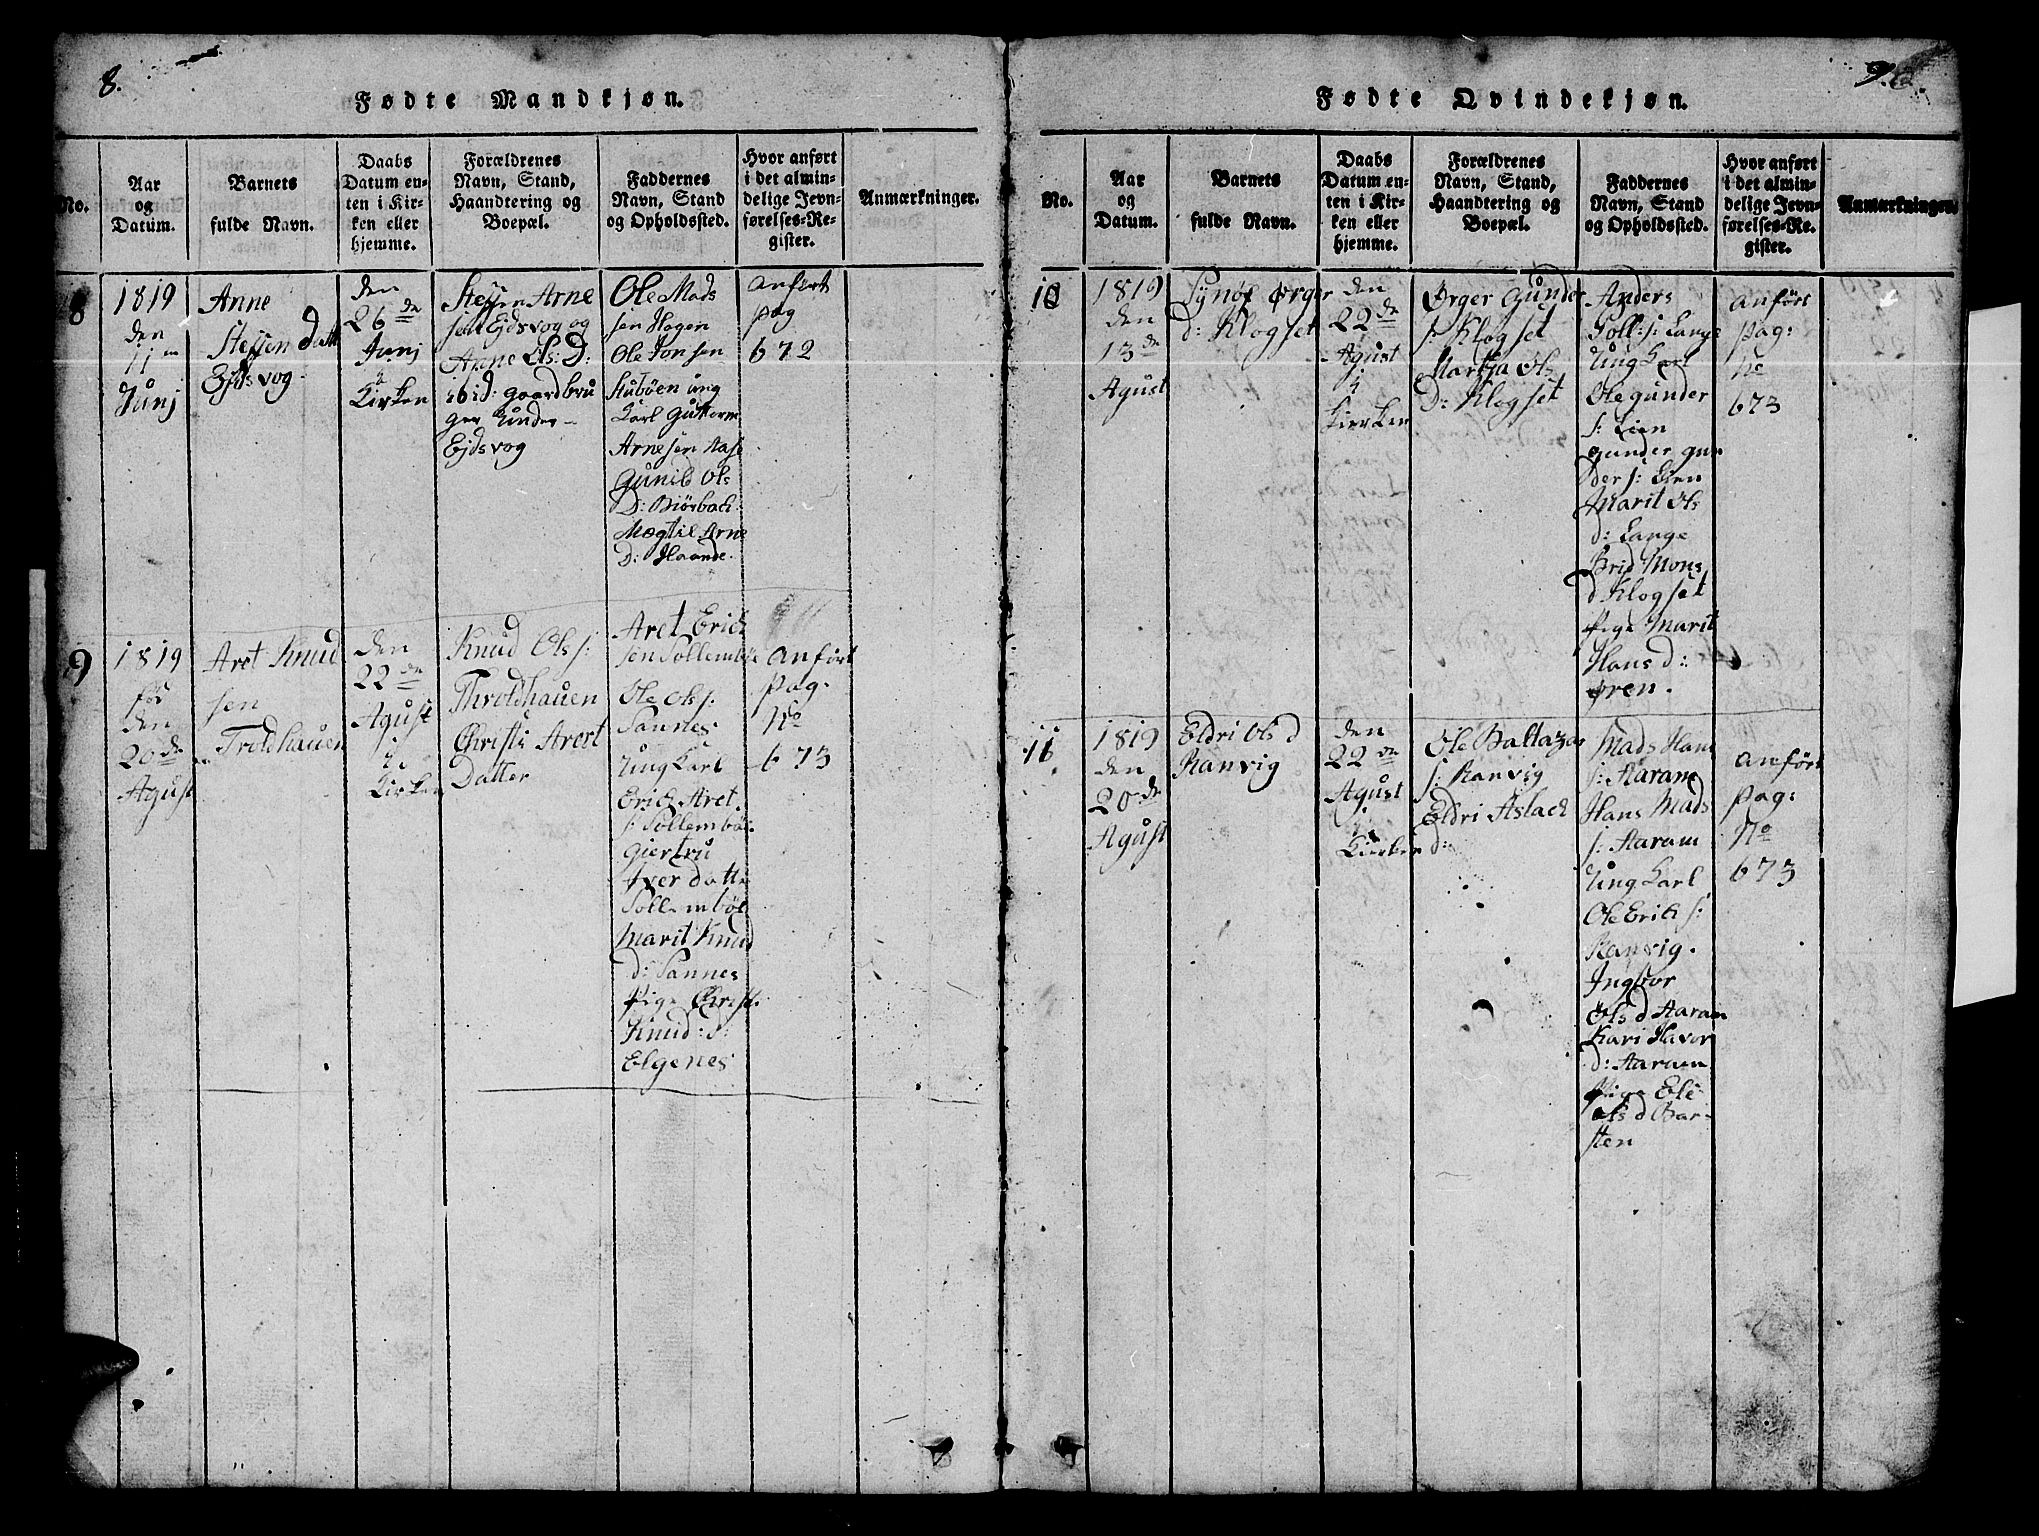 8.
Fødte Mandkjøn.
No.
Aar
og
Datum.
Barnets
fulde Navn.
Daabs
Datum en-
ten i Kir-
ken eller
hjemme.
Forældrenes
Navn, Stand,
Haandtering og
Boepæl.
Faddernes
Navn, Stand
og Opholdssted.
Hvor anført
i det almin-
delige Jevn-
førelses-Re-
gister.
Anmærkninger.
8
1819
den
11
Junj
Anne
Steffen Datt
Ejdsvog
den
26 de
Junj
i
Kirken
Steffen Arne
sen Ejdsvog og
Anne Ols: D:
ibid: gaardbru
ger
Ejdsvog
Ole Mads
sen Hogen
Ole Jonsen
Stubøen ung
Karl Guttorm
Arnesen Aase
Gunild Ols
D: Biørbach
Magtil Arne
D: Haande.
anført
pag
672
9
1819
før
den
20 de
Agust
Aret Knud
sen
Troldhauen
den
22 de
Agust
i
Kirken
Knud Ols s:
Throldhauen
Christi Arest
Datter
Aret Erich
sen Sollembøe
Ole Ols s:
Sannes
Ung Karl
Erich Aret
s: Sollembø
Giertru
Iver datt
Sollembøe
Marit Knud
d: Sannes
Pige Christ.
Knud: d:
Elgenes
anført
Pag:
No
673
9.
Fødte Qvindekjøn.
No.
Aar
og
Datum.
Barnets
fulde Navn.
Daabs
Datum en-
ten i Kir-
ken eller
hjemme.
Forældrenes
Navn, Stand,
Haandtering og
Boepæl.
Faddernes
Navn, Stand
og Opholdssted.
Hvor anført
i det almin-
delige Jevn-
førelses-Re-
gister.
Anmærkninger.
10
1819
den
13 de
Agust
Synøf Ørger
d: Klogset
den
22 de
Agust
i
Kierken
Ørger Gunder
s: Klogset
Martha Ols
D: Klogset
Anders
Toll: s: Lange
Ung Karl
Ole gunder
s: Lien
gunder gun
der s: Lien
Marit Ols
d: Lange
Brid Mons
d Klogset
Pige Marit
Hans d:
Øren.
anført
Pag:
No
673
11
1819
den
20 de
Agust
Eldri Ols d
Ranvig
den
22 de
Agust
i
Kierken
Ole Baltazar
s: Ranvig
Eldri Aslach
d:
Mads Hans
s: Aaram
Hans Mads
s: Aaram
Ung Karl
Ole Erich s:
Ranvig.
Ingbor
Ols d Aaram
Kari Havor
d: Aaram
Pige Ele
Ols d Bar-
sten
anført
Pag:
No
673